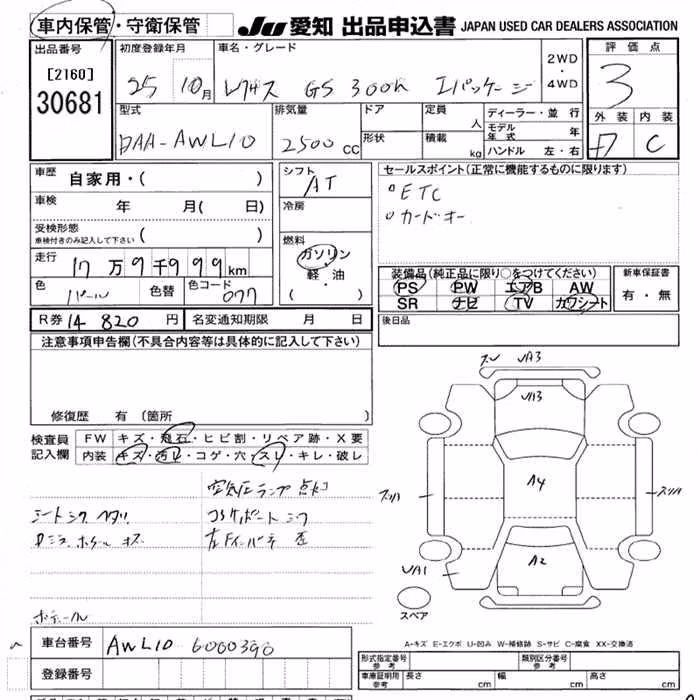 車内保管・守衛保管 JU 愛知 出品申込書 JAPAN USED CAR DEALERS ASSOCIATION
出品番号 初度登録年月 車名・グレード 2WD ・ 4WD 評価点
[2160] 25 10月 レクサス GS 300h Iパッケージ 3
30681
型式 排気量 ドア 定員 人 ディーラー・並行 外装 内装
DAA-AWL10 2500 CC 形状 積載 kg モデル年式 年 C
ハンドル 左・右
車歴 自家用・( ) シフト AT セールスポイント(正常に機能するものに限ります)
車検 年 月( 日) 冷房 ETC
受検形態 ( ) カードキー
車検付きのみ記入して下さい
走行 17万9千999km 燃料 ガソリン・軽・油 ( ) 装備品(純正品に限り○をつけてください) 新車保証書
色 パール 色替 色コード 077 PS PW エアB AW 有・無
SR ナビ TV カワシート
R券 14820 円 名変通知期限 月 日 後日品
注意事項申告欄(不具合内容等は具体的に記入して下さい)
修復歴 有 (箇所 )
検査員 FW キズ・飛石・ヒビ割・リペア跡・X要
記入欄 内装 キズ・汚レ・コゲ・穴・スレ・キレ・破レ
空気圧ランプ点灯
シートシワ ヘタリ コンソールボート シワ
左ドインバーチ 歪
ボデール
スレ UA3
UA3
スリハ A4 スリハ
A2
UA1
スペア
A-キズ E-エクボ U-凹み W-補修跡 S-サビ C-腐食 XX-交換済
車台番号 AWL10 6000390
登録番号
形式指定番号 参考 類別区分番号 参考
車庫証明用 参考 長さ cm 幅 cm 高さ cm